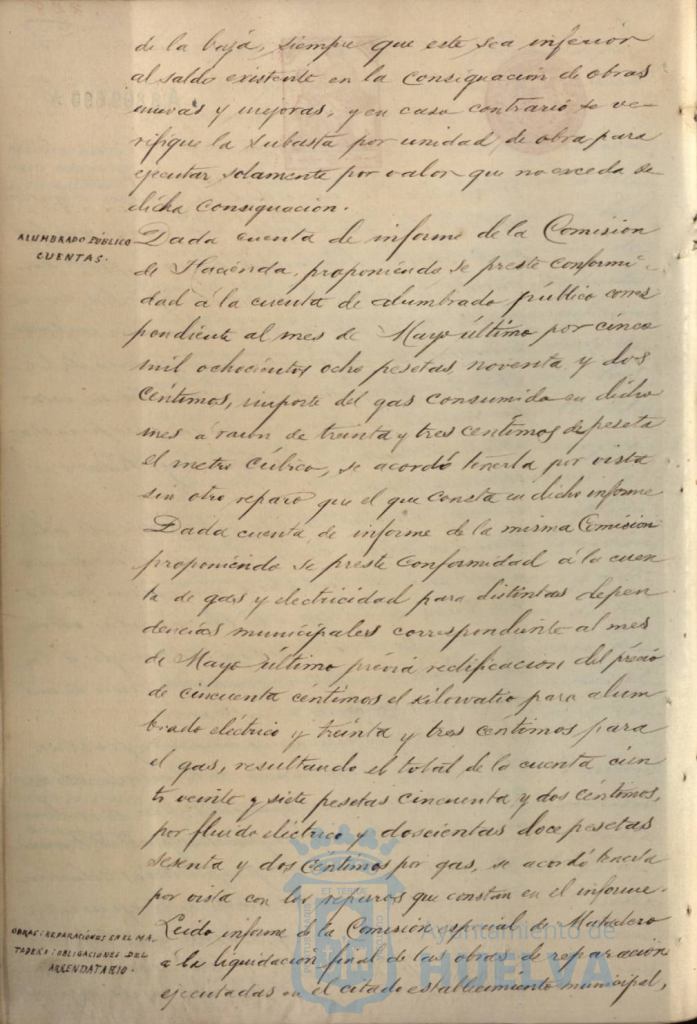 de la baja, siempre que este sea inferior
al saldo existente en la consignación de obras
nuevas y mejoras, y en caso contrario se ve-
rifique la subasta por unidad de obra para
ejecutar solamente por valor que no exceda de
dicha consignación.
ALUMBRADO PÚBLICO
CUENTAS.
Dada cuenta de informe de la Comision
de Hacienda, proponiendo se preste conformi-
dad á la cuenta de alumbrado público corres
pondiente al mes de Mayo último por cinco
mil ochocientos ocho pesetas, noventa y dos
céntimos, importe del gas consumido en dicho
mes á razon de treinta y tres centimos de peseta
el metro cúbico, se acordó tenerla por vista
sin otro reparo que el que consta en dicho informe
Dada cuenta de informe de la misma Comision
proponiendo se preste conformidad á la cuen
ta de gas y electricidad para distintas depen
dencias municipales correspondiente al mes
de Mayo último prévia rectificacion del précio
de cincuenta céntimos el kilowatio para alum
brado eléctrico y treinta y tres centimos para
el gas, resultando el total de la cuenta cien
to veinte y siete pesetas cincuenta y dos céntimos,
por fluido eléctrico y doscientas doce pesetas
sesenta y dos centimos por gas, se acordó tenerla
por vista con los reparos que constan en el informe.
OBRAS: REPARACIONES EN EL MA-
TADERO: OBLIGACIONES DEL
ARRENDATARIO.
Leido informe de la Comisión especial de Matadero
á la liquidación final de las obras de reparacion
ejecutadas en el citado establecimiento municipal,
Ayuntamiento de
HUELVA